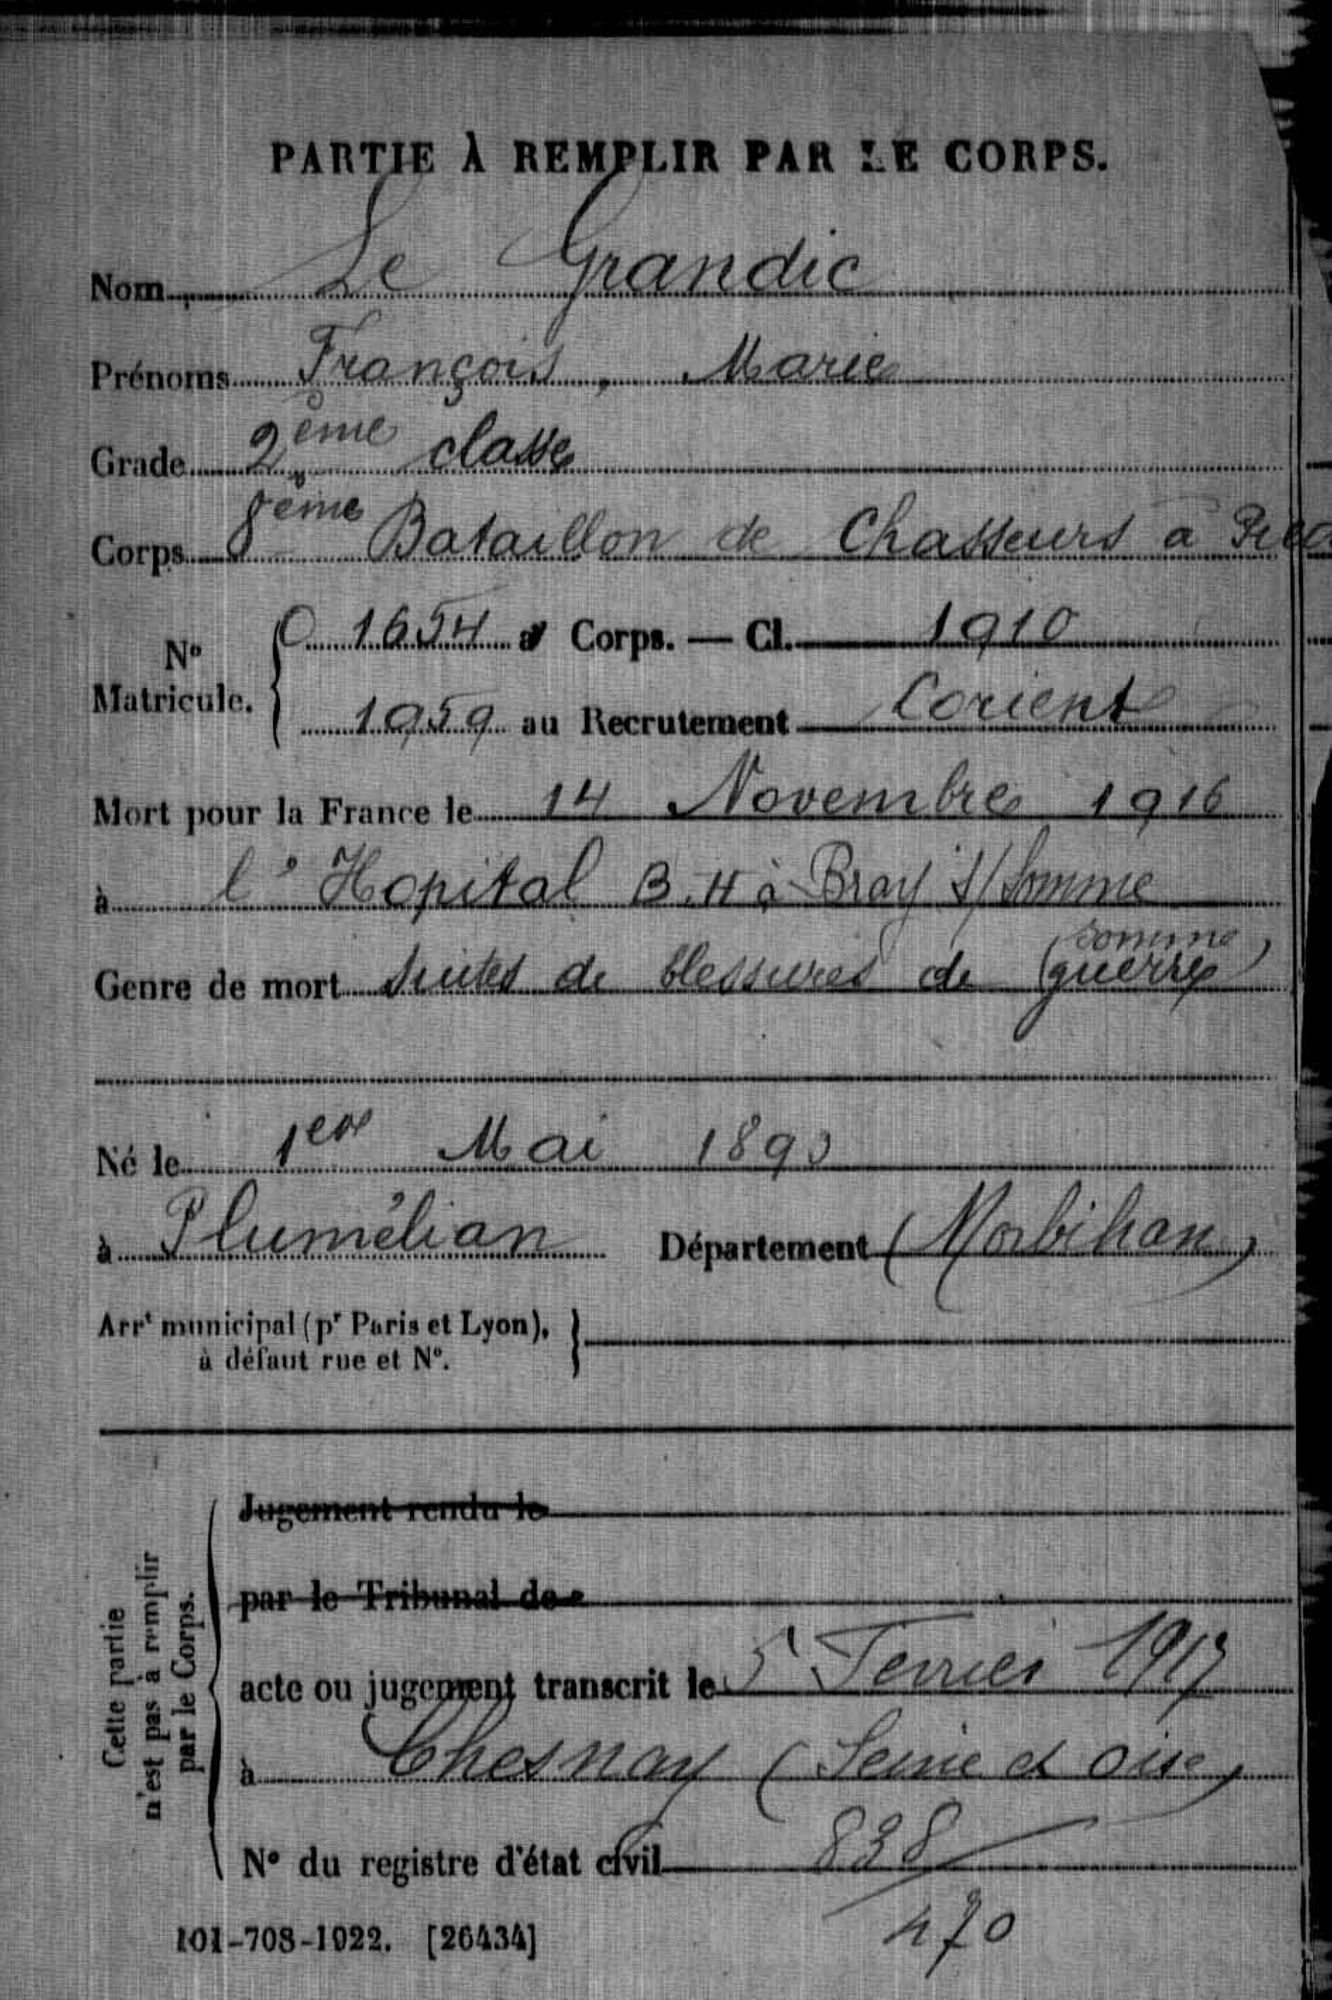 PARTIE À REMPLIR PAR LE CORPS.
Nom Le Grandic
Prénoms François, Marie
Grade 2ème classe
Corps 8ème Bataillon de Chasseurs à Pied
N° Matricule. { 1654 au Corps. — Cl. 1910
1959 au Recrutement Lorient
Mort pour la France le 14 Novembre 1916
à l'Hopital B.H à Bray s/Somme
(Somme)
Genre de mort suites de blessures de guerre
Né le 1er Mai 1890
à Plumélian Département (Morbihan)
Arrt municipal (pr Paris et Lyon),
à défaut rue et N°.
Cette partie
n'est pas à remplir
par le Corps.
Jugement rendu le
par le Tribunal de
acte ou jugement transcrit le 5 Fevrier 1917
à Chesnay (Seine et Oise)
N° du registre d'état civil 838
470
101-708-1922. [26434]